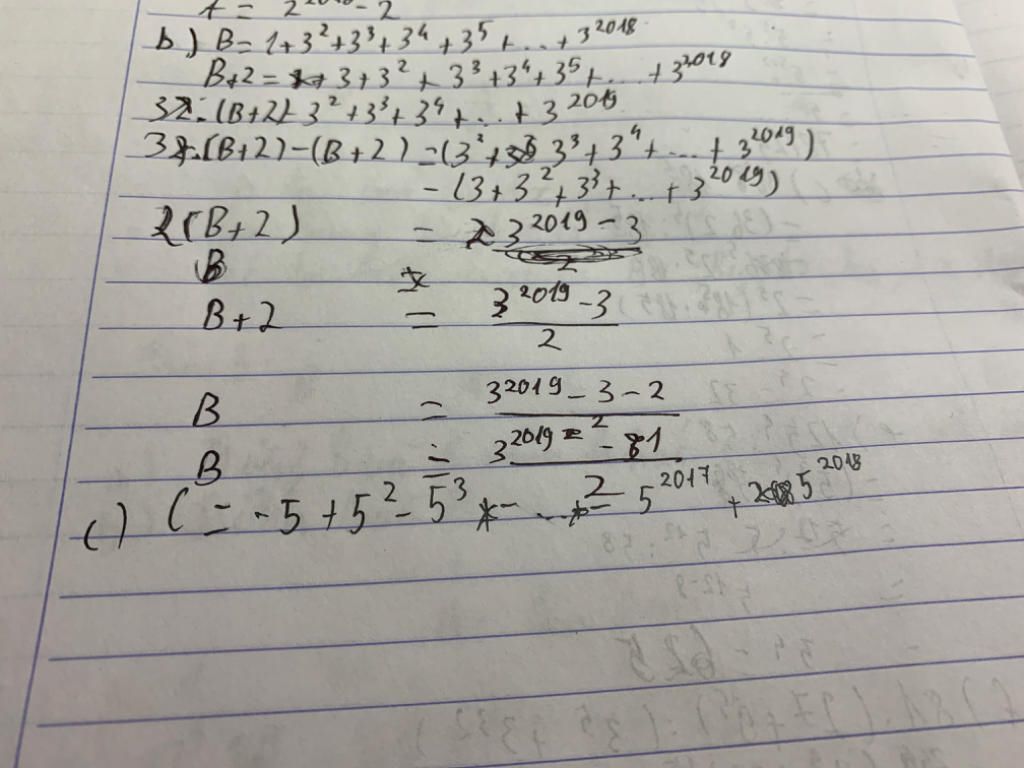 = 2 - 2
b) B = 1 + 3² + 3³ + 3⁴ + 3⁵ + ... + 3²⁰¹⁸
B + 2 = 3 + 3² + 3³ + 3⁴ + 3⁵ + ... + 3²⁰¹⁸
3 . (B + 2) = 3² + 3³ + 3⁴ + ... + 3²⁰¹⁹
3 . (B + 2) - (B + 2) = (3² + 3³ + 3⁴ + ... + 3²⁰¹⁹)
- (3 + 3² + 3³ + ... + 3²⁰¹⁹)
2(B + 2) = 3²⁰¹⁹ - 3
B
2
B + 2 = (3²⁰¹⁹ - 3)/2
B = 3²⁰¹⁹ - 3 - 2
B = (3²⁰¹⁹ - 1)/2
c) C = -5 + 5² - 5³ - ... - 5²⁰¹⁷ + 5²⁰¹⁸